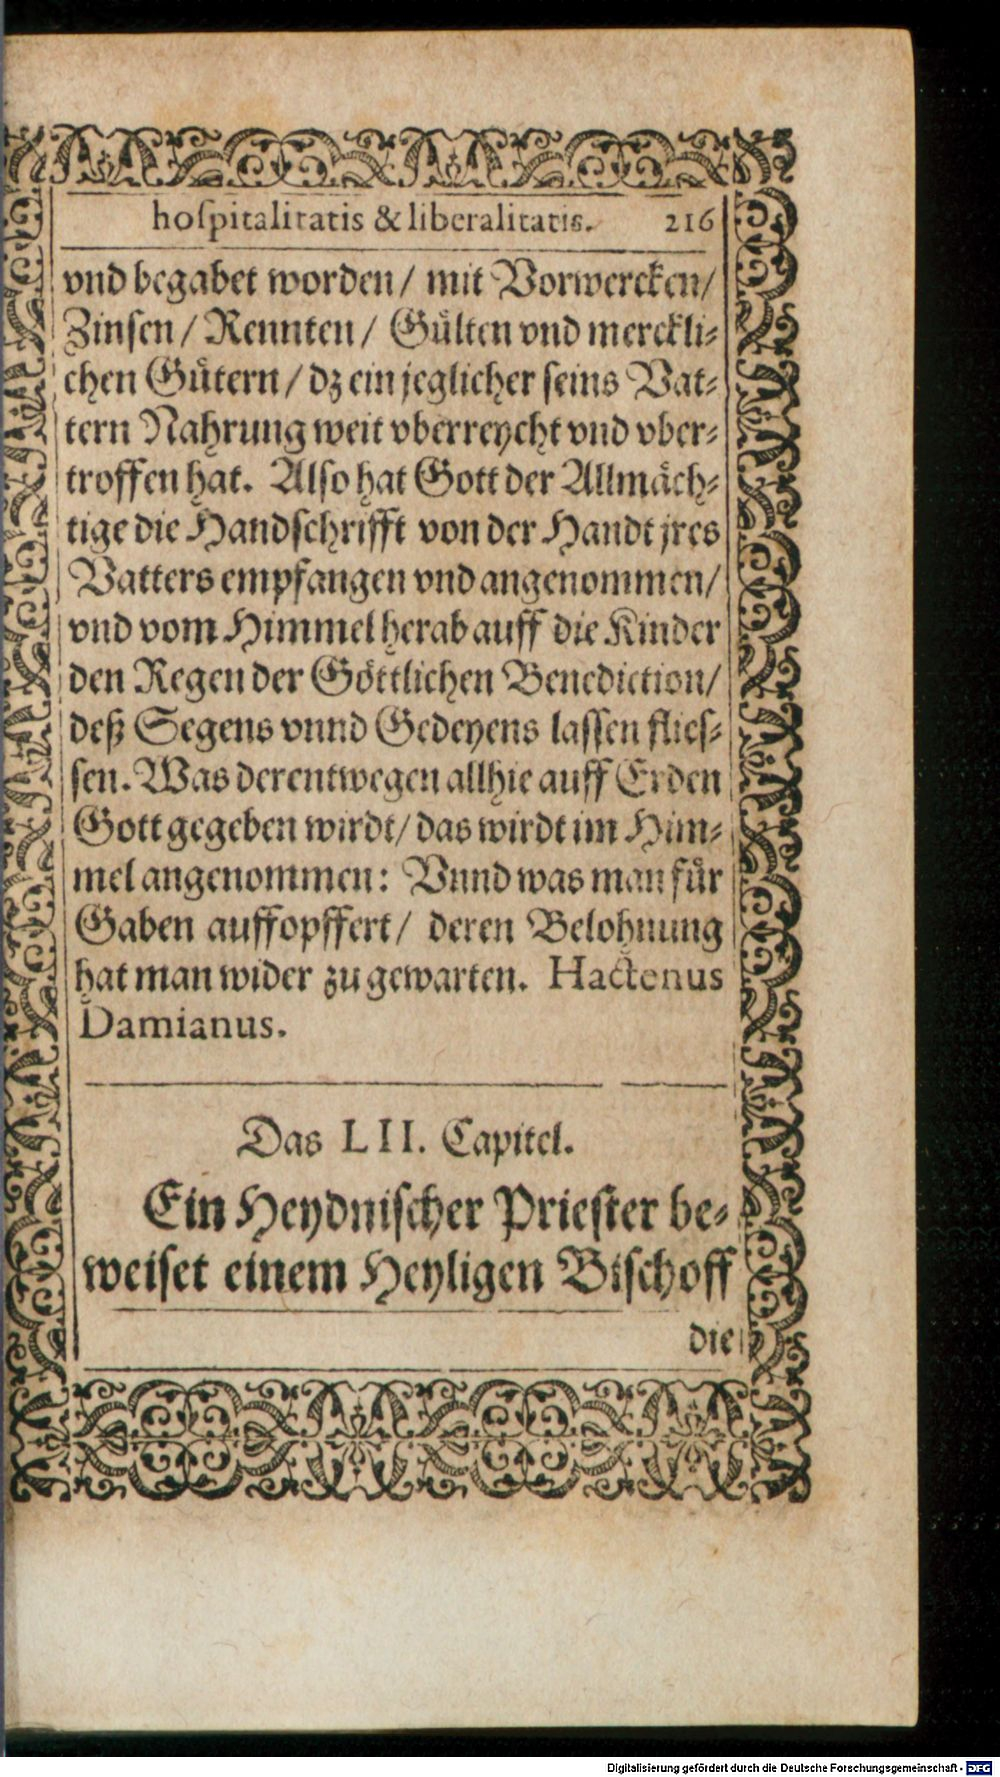 hoſpitalitatis & liberalitatis. 216
vnd begabet worden/ mit Vorwercken/
Zinſen/ Rennten/ Guͤlten vnd merckli⸗
chen Guͤtern/ dz ein jeglicher ſeins Vat⸗
tern Nahrung weit vberreycht vnd vber⸗
troffen hat. Alſo hat Gott der Allmaͤch⸗
tige die Handſchrifft von der Handt jres
Vatters empfangen vnd angenommen/
vnd vom Himmel herab auff die Kinder
den Regen der Goͤttlichen Benediction/
deß Segens vnnd Gedeyens laſſen flieſ⸗
ſen. Was derentwegen allhie auff Erden
Gott gegeben wirdt/ das wirdt im Him⸗
mel angenommen: Vnnd was man fuͤr
Gaben auffopffert/ deren Belohnung
hat man wider zu gewarten. Hactenus
Damianus.
Das LII. Capitel.
Ein Heydniſcher Prieſter be⸗
weiſet einem Heyligen Biſchoff
die
Digitalisierung gefördert durch die Deutsche Forschungsgemeinschaft - DFG